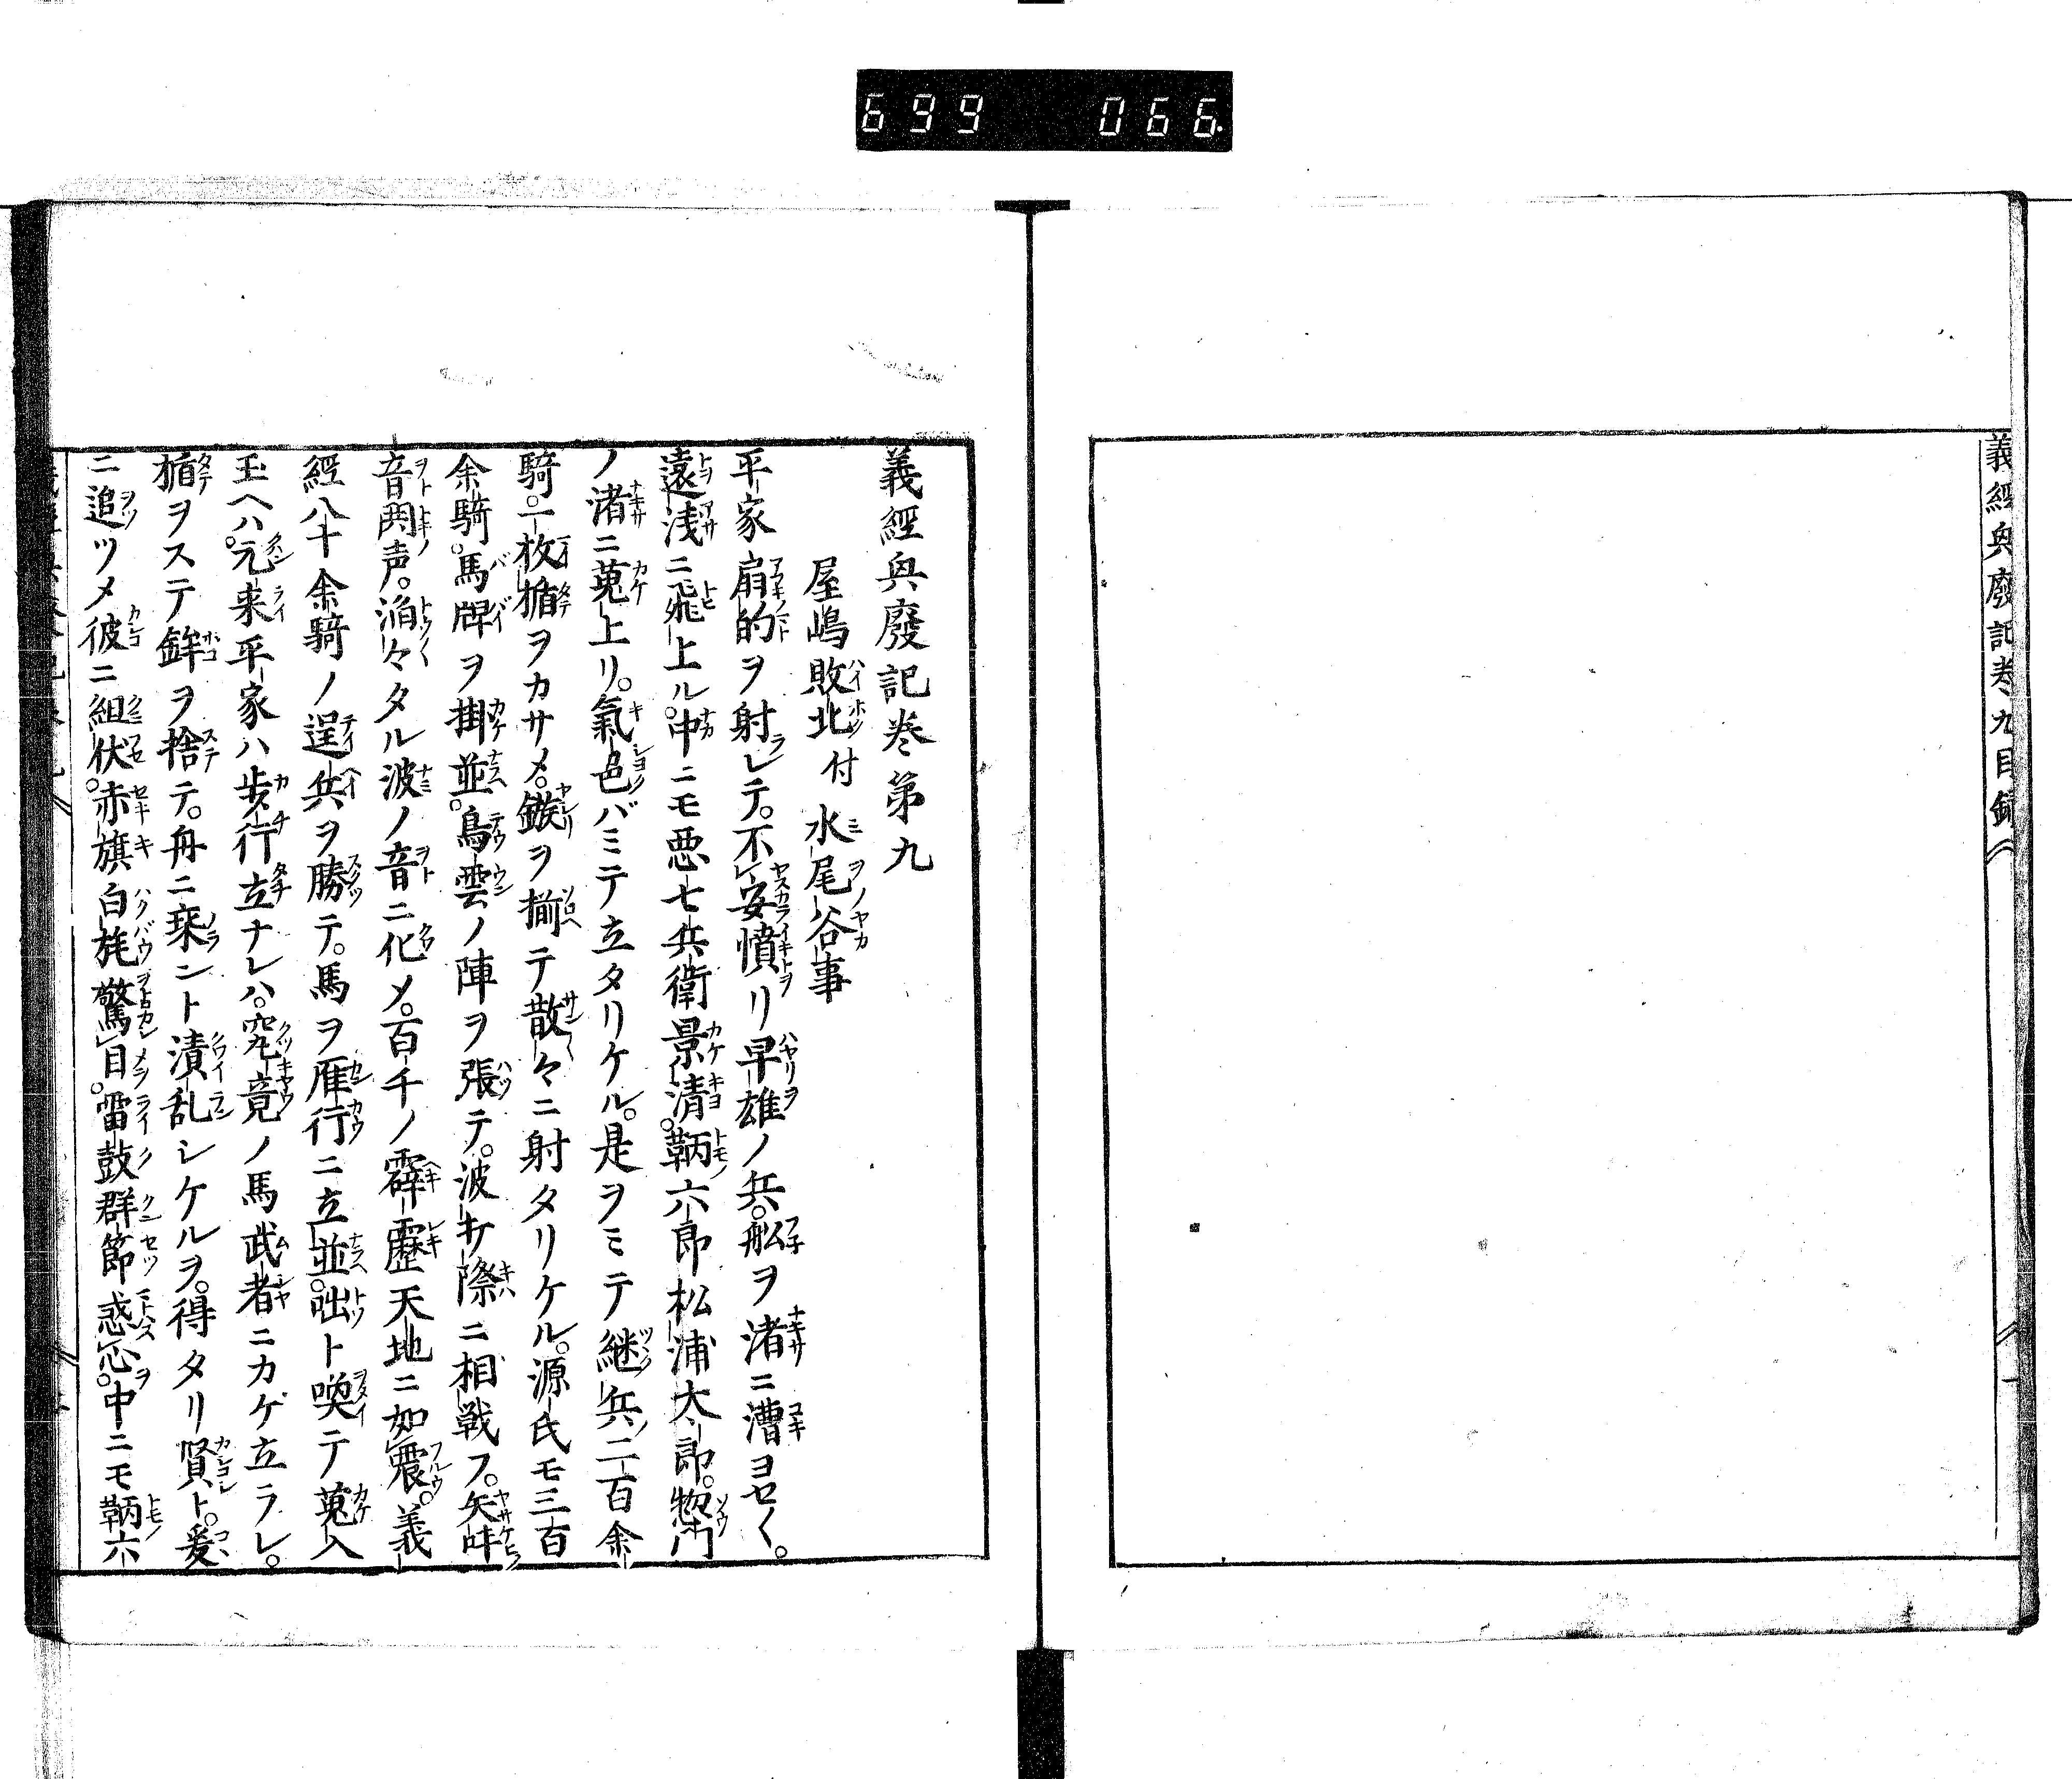 699 066
義經興廢記巻九目録
義經興廢記巻第九
屋嶋敗北付水尾谷事
平家扇的ヲ射レテ。不安憤リ早雄ノ兵。舩ヲ渚ニ漕ヨセ〱。
遠浅ニ飛上ル。中ニモ悪七兵衛景清。鞆六郎松浦大郎。惣門
ノ渚ニ蒐上リ。氣色バミテ立タリケル。是ヲミテ継兵二百余
騎。一枚楯ヲカサメ。鏃ヲ揃テ散々ニ射タリケル。源氏モ三百
余騎。馬牌ヲ掛並。鳥雲ノ陣ヲ張テ。波キ際ニ相戦フ。矢呼
音鬨声。滔々タル波ノ音ニ化メ。百千ノ霹靂天地ニ如震。義
經八十余騎ノ逞兵ヲ勝テ。馬ヲ雁行ニ立並。咄ト喚テ蒐入
玉ヘハ。元来平家ハ歩行立ナレハ。究竟ノ馬武者ニカゲ立ラレ。
楯ヲステ鉾ヲ捨テ。舟ニ乗ント潰乱シケルヲ。得タリ賢ト。爰
ニ追ツメ彼ニ組伏。赤旗白旄驚目。雷鼓群節惑心。中ニモ鞆六